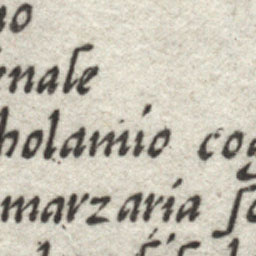 no
enale
holamio cog
marzaria so